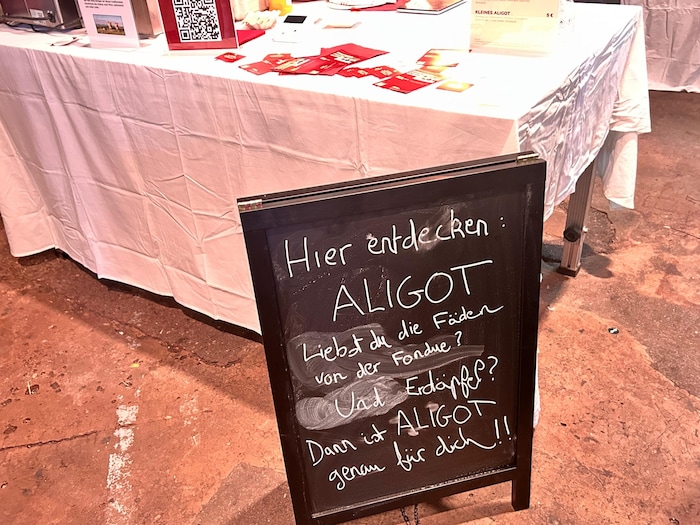 KLEINES ALIGOT
5 €
Hier entdecken:
ALIGOT
Liebst du die Fäden
von der Fondue?
Und Erdäpfel?
Dann ist ALIGOT
genau für dich!!